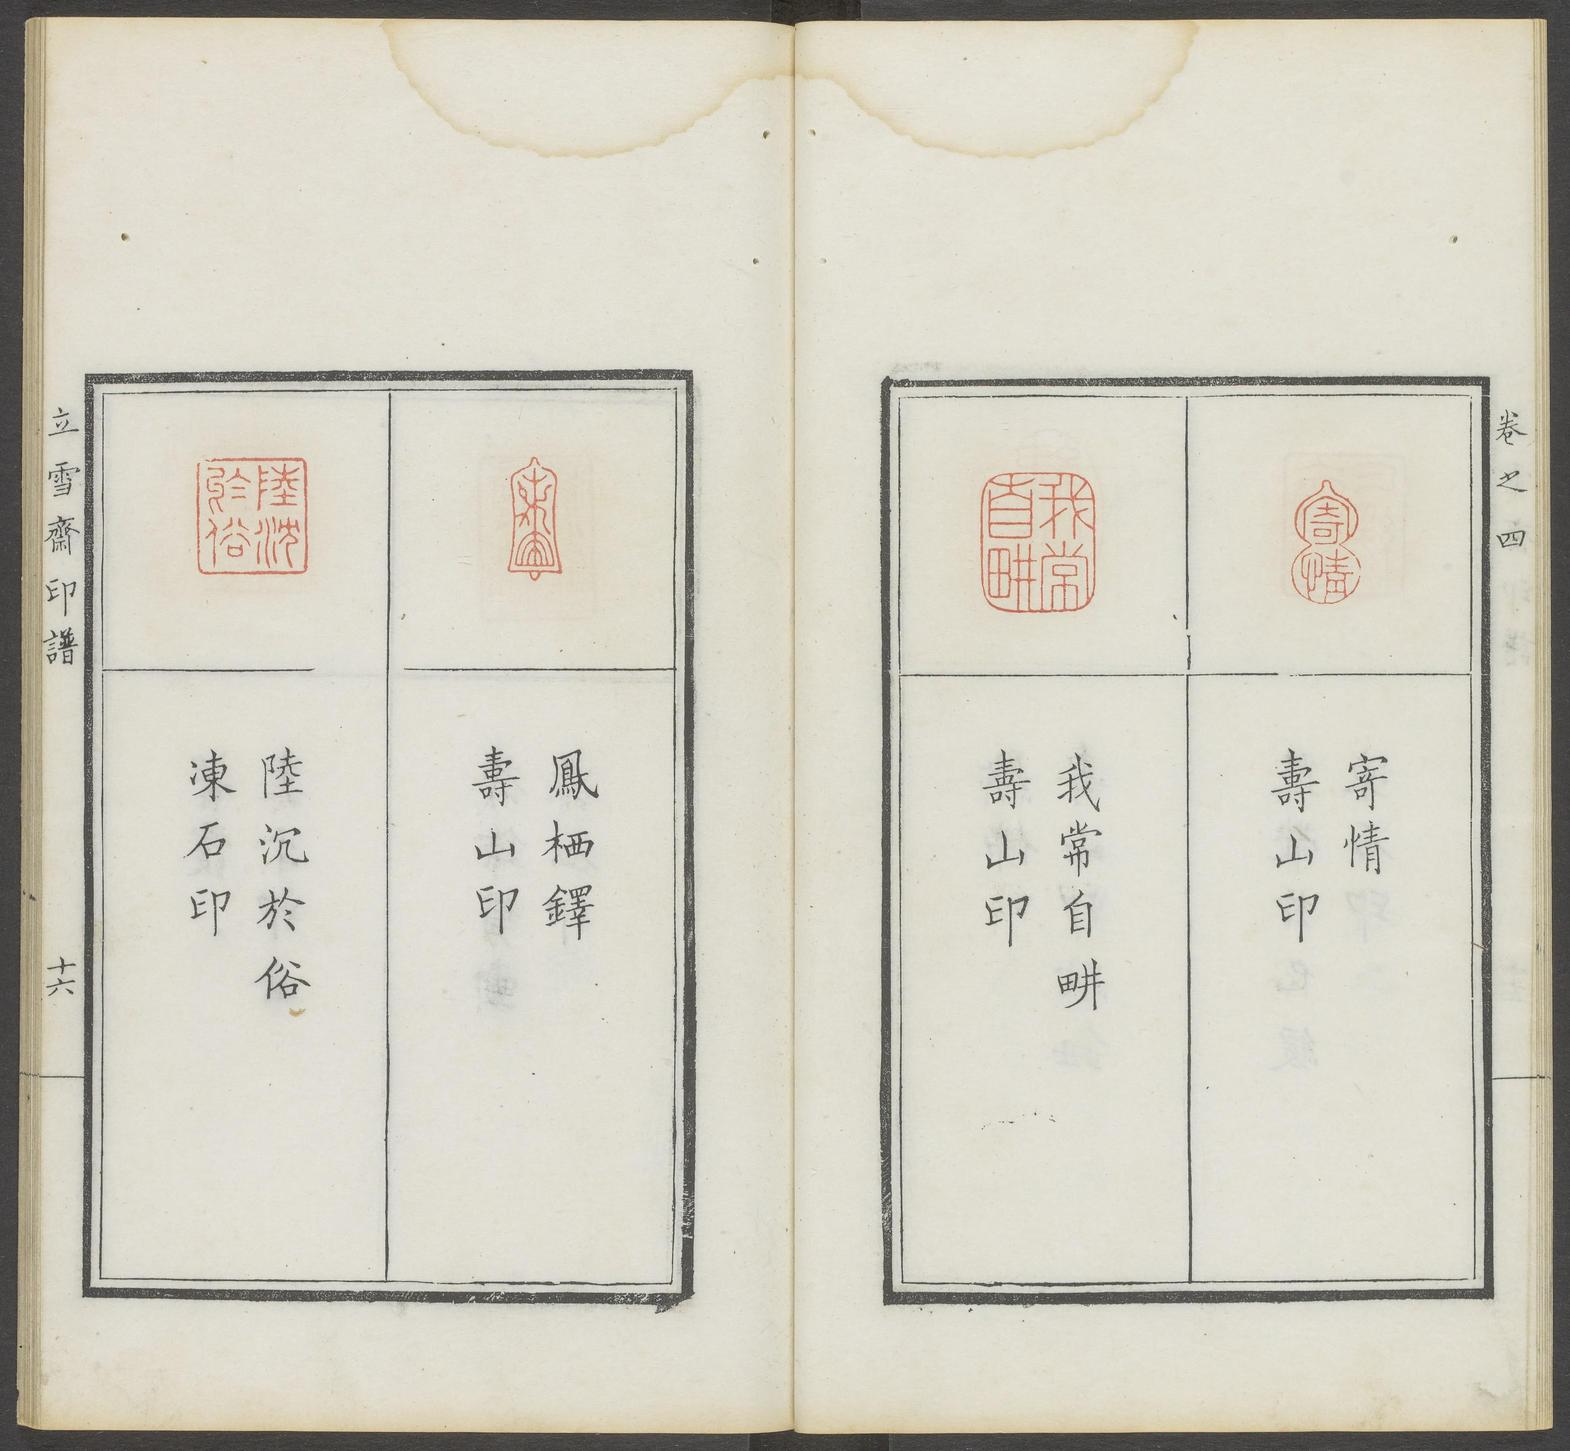 卷之四
寄情
寄情
壽山印
我常自畊
我常自畊
壽山印
鳳栖鐸
壽山印
陸沈於俗
陸沉於俗
凍石印
立雪齋印譜
十六